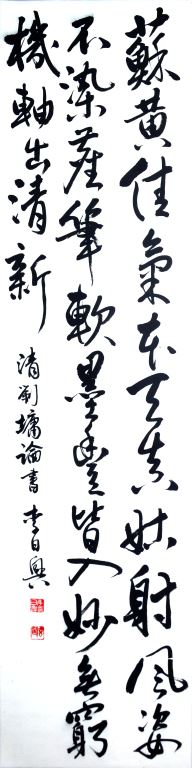 蘇黄佳氣本天真姑射風姿
不染塵筆軟墨豐皆入妙無窮
機軸出清新
清劉墉論書 李